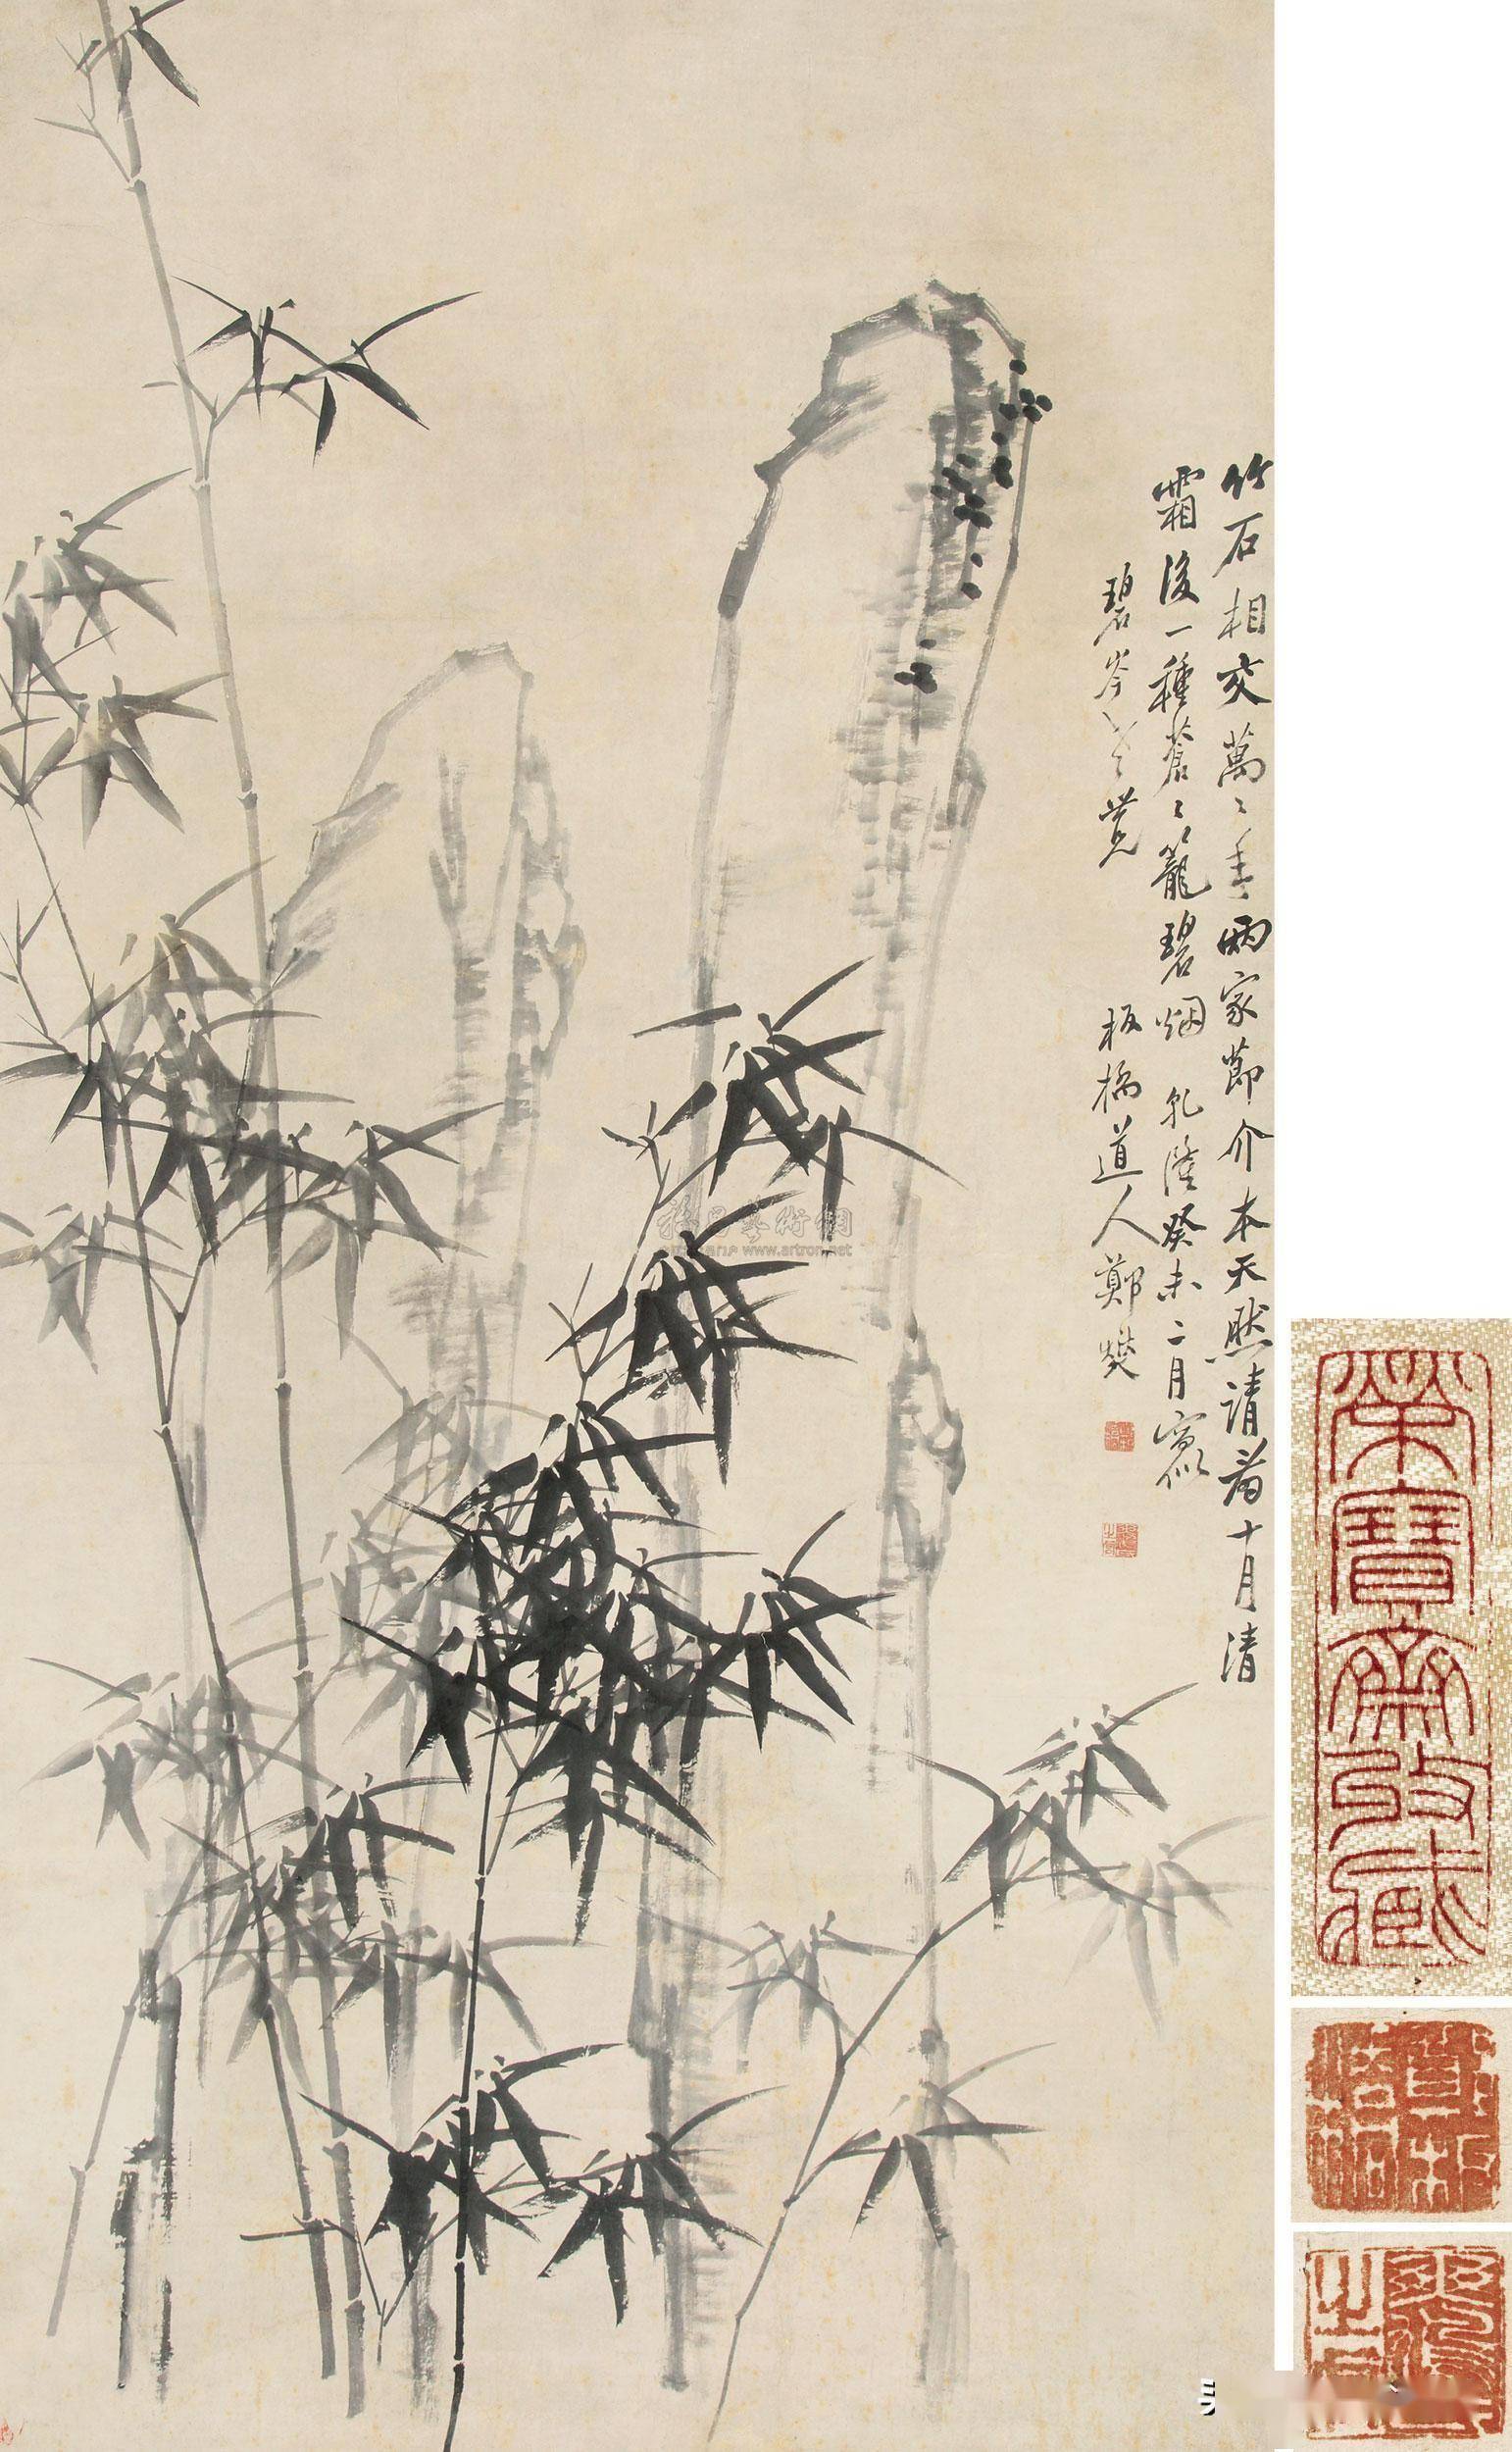 竹石相交萬〻年兩家節介本天然請看十月清
霜後一種蒼〻籠碧烟 乾隆癸未二月寫似
碧岑 老〻覽
板橋道人鄭燮
雅昌藝術網
www.artron.net
榮寶齋收藏